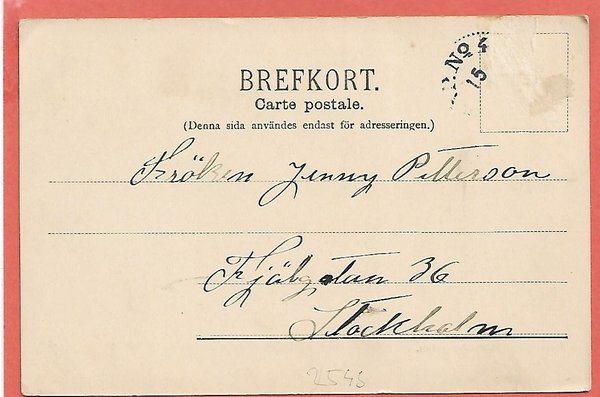 P. No 4
15
BREFKORT.
Carte postale.
(Denna sida användes endast för adresseringen.)
Fröken Jenny Petterson
36
Stockholm